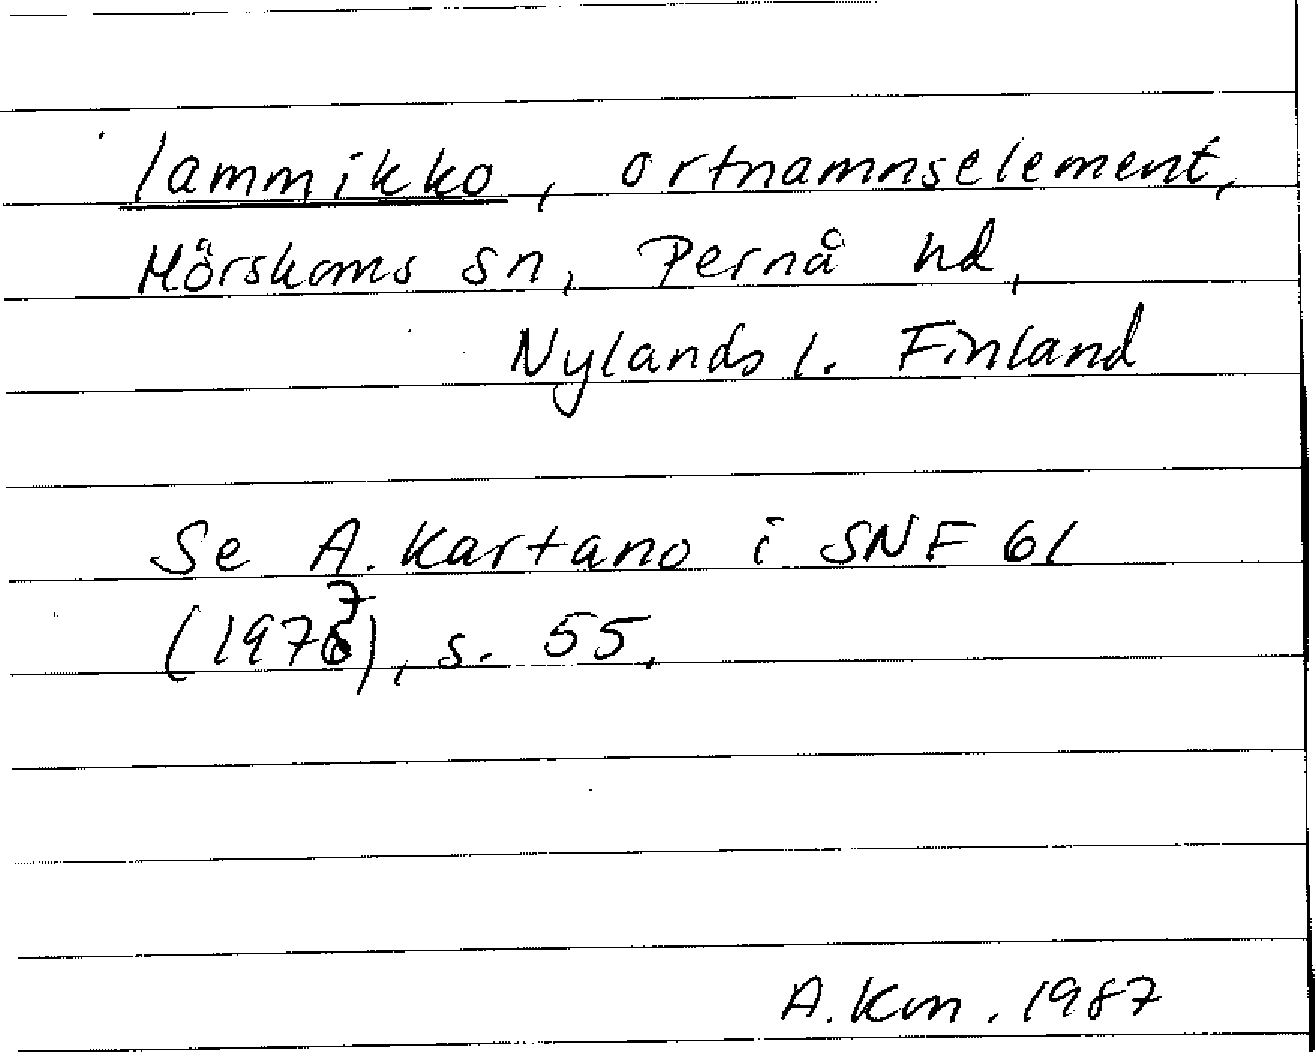 lammikko, ortnamnselement,
Mörskoms sn, Pernå hd,
Nylands l. Finland
Se A. Kartano i SNF 61
(1977), s. 55.
A. Km. 1987